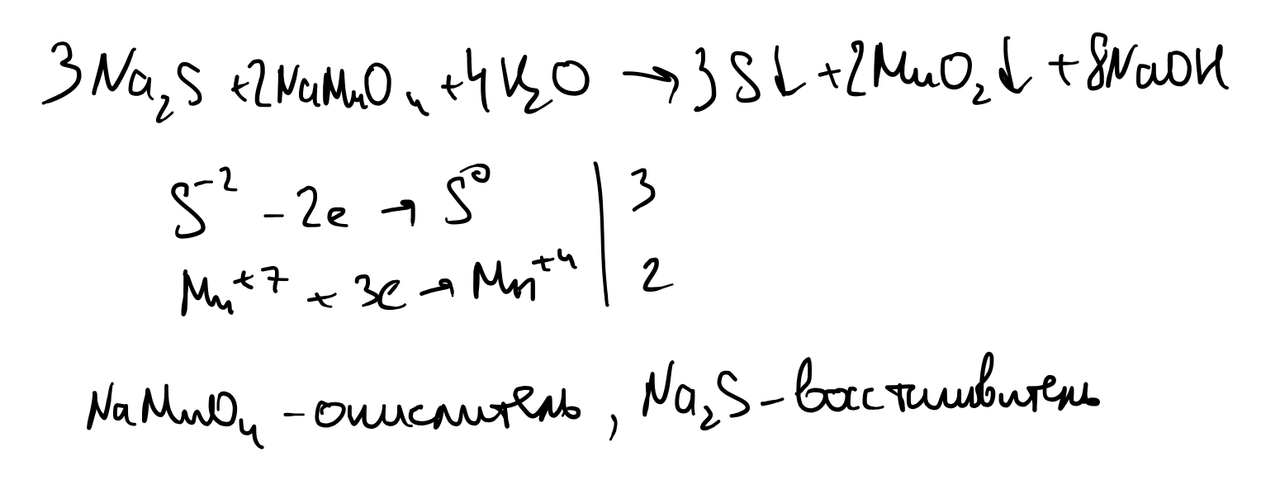 3Na₂S + 2NaMnO₄ + 4H₂O → 3S↓ + 2MnO₂↓ + 8NaOH
S⁻² - 2e → S⁰ | 3
Mn⁺⁷ + 3e → Mn⁺⁴ | 2
NaMnO₄ - окислитель, Na₂S - восстановитель